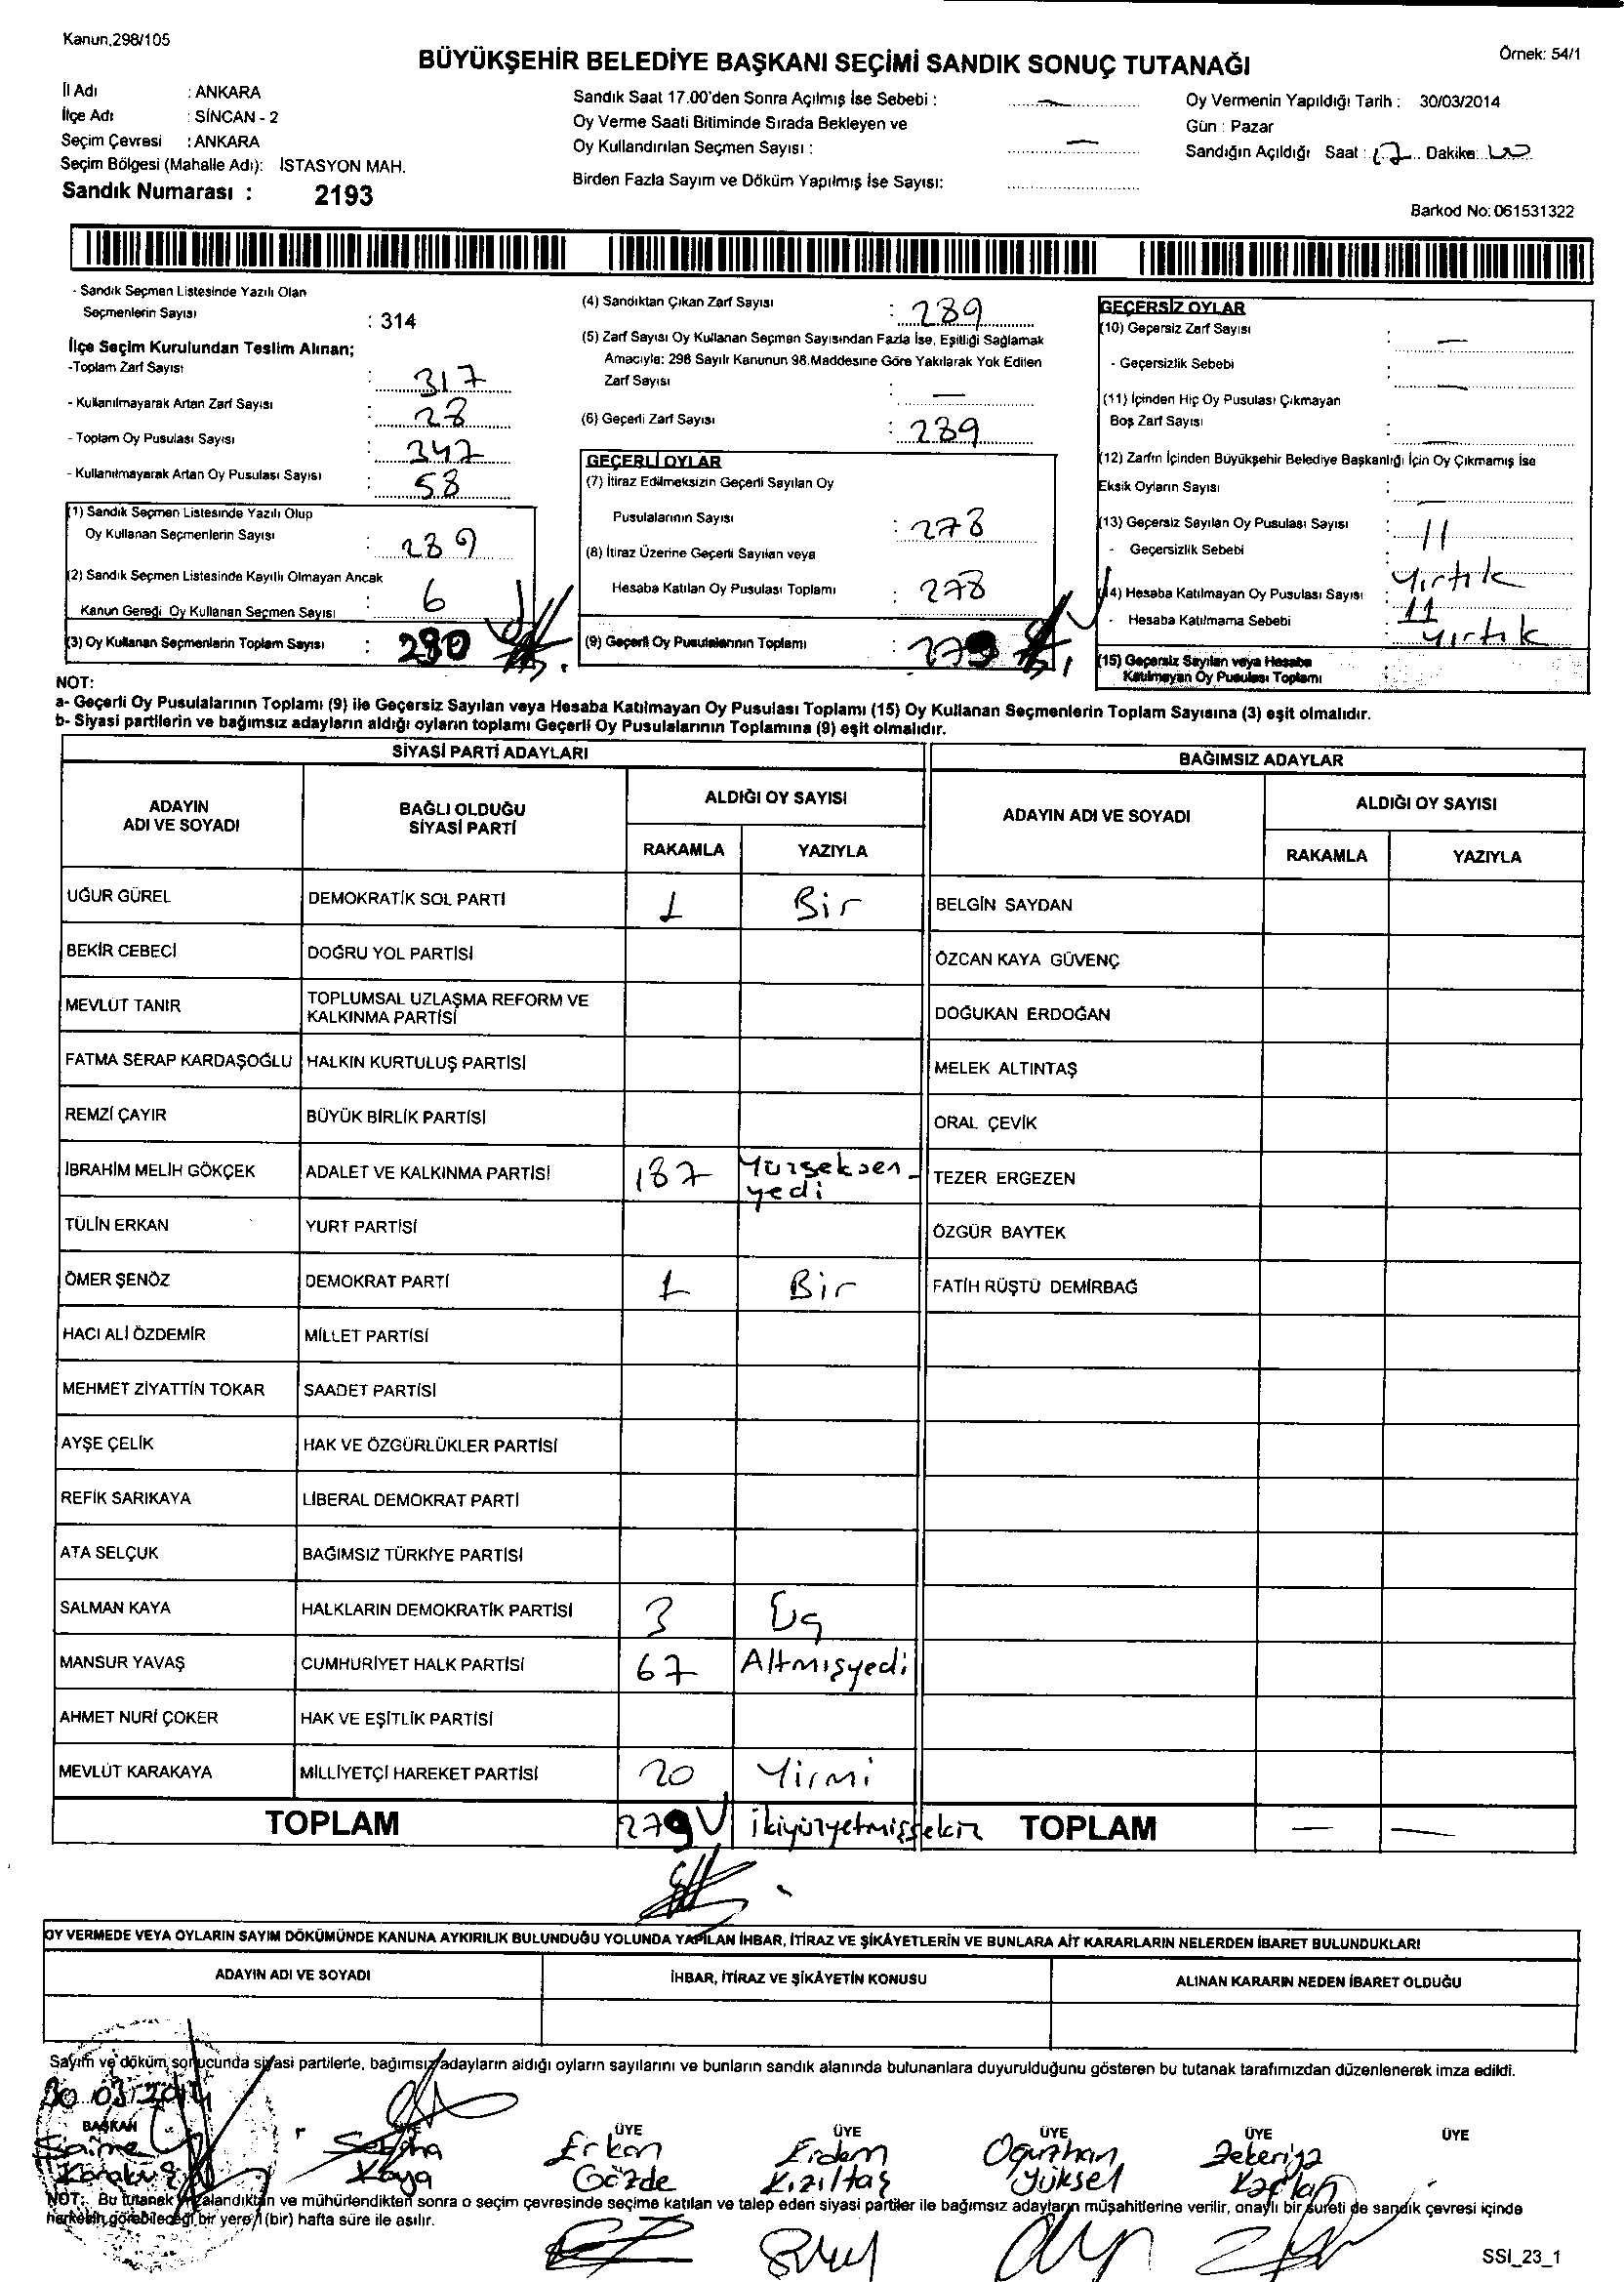 Kanun,298/105
BÜYÜKŞEHİR BELEDİYE BAŞKANI SEÇİMİ SANDIK SONUÇ TUTANAĞI
Örnek: 54/1
İl Adı : ANKARA
İlçe Adı : SİNCAN - 2
Seçim Çevresi : ANKARA
Seçim Bölgesi (Mahalle Adı): İSTASYON MAH.
Sandık Numarası : 2193
Sandık Saat 17.00'den Sonra Açılmış İse Sebebi : —
Oy Verme Saati Bitiminde Sırada Bekleyen ve
Oy Kullandırılan Seçmen Sayısı : —
Birden Fazla Sayım ve Döküm Yapılmış İse Sayısı:
Oy Vermenin Yapıldığı Tarih : 30/03/2014
Gün : Pazar
Sandığın Açıldığı Saat : 17 Dakika: 00
Barkod No: 061531322
- Sandık Seçmen Listesinde Yazılı Olan
Seçmenlerin Sayısı : 314
İlçe Seçim Kurulundan Teslim Alınan;
-Toplam Zarf Sayısı : 317
- Kullanılmayarak Artan Zarf Sayısı : 28
- Toplam Oy Pusulası Sayısı : 347
- Kullanılmayarak Artan Oy Pusulası Sayısı : 58
(1) Sandık Seçmen Listesinde Yazılı Olup
Oy Kullanan Seçmenlerin Sayısı : 289
(2) Sandık Seçmen Listesinde Kayıtlı Olmayan Ancak
Kanun Gereği Oy Kullanan Seçmen Sayısı : 6
(3) Oy Kullanan Seçmenlerin Toplam Sayısı : 290
(4) Sandıktan Çıkan Zarf Sayısı : 289
(5) Zarf Sayısı Oy Kullanan Seçmen Sayısından Fazla İse, Eşitliği Sağlamak
Amacıyla: 298 Sayılı Kanunun 98.Maddesine Göre Yakılarak Yok Edilen
Zarf Sayısı : —
(6) Geçerli Zarf Sayısı : 289
GEÇERLİ OYLAR
(7) İtiraz Edilmeksizin Geçerli Sayılan Oy
Pusulalarının Sayısı : 278
(8) İtiraz Üzerine Geçerli Sayılan veya
Hesaba Katılan Oy Pusulası Toplamı : 278
(9) Geçerli Oy Pusulalarının Toplamı : 279
GEÇERSİZ OYLAR
(10) Geçersiz Zarf Sayısı : —
- Geçersizlik Sebebi : —
(11) İçinden Hiç Oy Pusulası Çıkmayan
Boş Zarf Sayısı : —
(12) Zarfın İçinden Büyükşehir Belediye Başkanlığı İçin Oy Çıkmamış İse
Eksik Oyların Sayısı : —
(13) Geçersiz Sayılan Oy Pusulası Sayısı : 11
- Geçersizlik Sebebi : Yırtık
(14) Hesaba Katılmayan Oy Pusulası Sayısı : 11
- Hesaba Katılmama Sebebi : yırtık
(15) Geçersiz Sayılan veya Hesaba
Katılmayan Oy Pusulası Toplamı :
NOT:
a- Geçerli Oy Pusulalarının Toplamı (9) ile Geçersiz Sayılan veya Hesaba Katılmayan Oy Pusulası Toplamı (15) Oy Kullanan Seçmenlerin Toplam Sayısına (3) eşit olmalıdır.
b- Siyasi partilerin ve bağımsız adayların aldığı oyların toplamı Geçerli Oy Pusulalarının Toplamına (9) eşit olmalıdır.
SİYASİ PARTİ ADAYLARI BAĞIMSIZ ADAYLAR
ADAYIN ADI VE SOYADI BAĞLI OLDUĞU SİYASİ PARTİ ALDIĞI OY SAYISI ADAYIN ADI VE SOYADI ALDIĞI OY SAYISI
RAKAMLA YAZIYLA RAKAMLA YAZIYLA
UĞUR GÜREL DEMOKRATİK SOL PARTİ 1 Bir BELGİN SAYDAN
BEKİR CEBECİ DOĞRU YOL PARTİSİ ÖZCAN KAYA GÜVENÇ
MEVLÜT TANIR TOPLUMSAL UZLAŞMA REFORM VE KALKINMA PARTİSİ DOĞUKAN ERDOĞAN
FATMA SERAP KARDAŞOĞLU HALKIN KURTULUŞ PARTİSİ MELEK ALTINTAŞ
REMZİ ÇAYIR BÜYÜK BİRLİK PARTİSİ ORAL ÇEVİK
İBRAHİM MELİH GÖKÇEK ADALET VE KALKINMA PARTİSİ 187 Yüzseksen-yedi TEZER ERGEZEN
TÜLİN ERKAN YURT PARTİSİ ÖZGÜR BAYTEK
ÖMER ŞENÖZ DEMOKRAT PARTİ 1 Bir FATİH RÜŞTÜ DEMİRBAĞ
HACI ALİ ÖZDEMİR MİLLET PARTİSİ
MEHMET ZİYATTİN TOKAR SAADET PARTİSİ
AYŞE ÇELİK HAK VE ÖZGÜRLÜKLER PARTİSİ
REFİK SARIKAYA LİBERAL DEMOKRAT PARTİ
ATA SELÇUK BAĞIMSIZ TÜRKİYE PARTİSİ
SALMAN KAYA HALKLARIN DEMOKRATİK PARTİSİ 3 Üç
MANSUR YAVAŞ CUMHURİYET HALK PARTİSİ 67 Altmışyedi
AHMET NURİ ÇOKER HAK VE EŞİTLİK PARTİSİ
MEVLÜT KARAKAYA MİLLİYETÇİ HAREKET PARTİSİ 20 Yirmi
TOPLAM 279 İkiyüzyetmişsekiz TOPLAM — —
OY VERMEDE VEYA OYLARIN SAYIM DÖKÜMÜNDE KANUNA AYKIRILIK BULUNDUĞU YOLUNDA YAPILAN İHBAR, İTİRAZ VE ŞİKÂYETLERİN VE BUNLARA AİT KARARLARIN NELERDEN İBARET BULUNDUKLARI
ADAYIN ADI VE SOYADI İHBAR, İTİRAZ VE ŞİKÂYETİN KONUSU ALINAN KARARIN NEDEN İBARET OLDUĞU
Sayım ve döküm sonucunda siyasi partilerle, bağımsız adayların aldığı oyların sayılarını ve bunların sandık alanında bulunanlara duyurulduğunu gösteren bu tutanak tarafımızdan düzenlenerek imza edildi.
30.03.2014
BAŞKAN ÜYE ÜYE ÜYE ÜYE ÜYE
Saime Erkan Erdem Oğuzhan Zekeriya
Kaya Gözde Kızıltaş Yüksel Kaplan
NOT: Bu tutanak imzalandıktan ve mühürlendikten sonra o seçim çevresinde seçime katılan ve talep eden siyasi partiler ile bağımsız adayların müşahitlerine verilir, onaylı bir sureti de sandık çevresi içinde
herkesin görebileceği bir yere 1 (bir) hafta süre ile asılır.
SSI_23_1